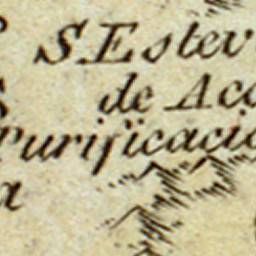 S. Estev
de Aca
Purificacio
a